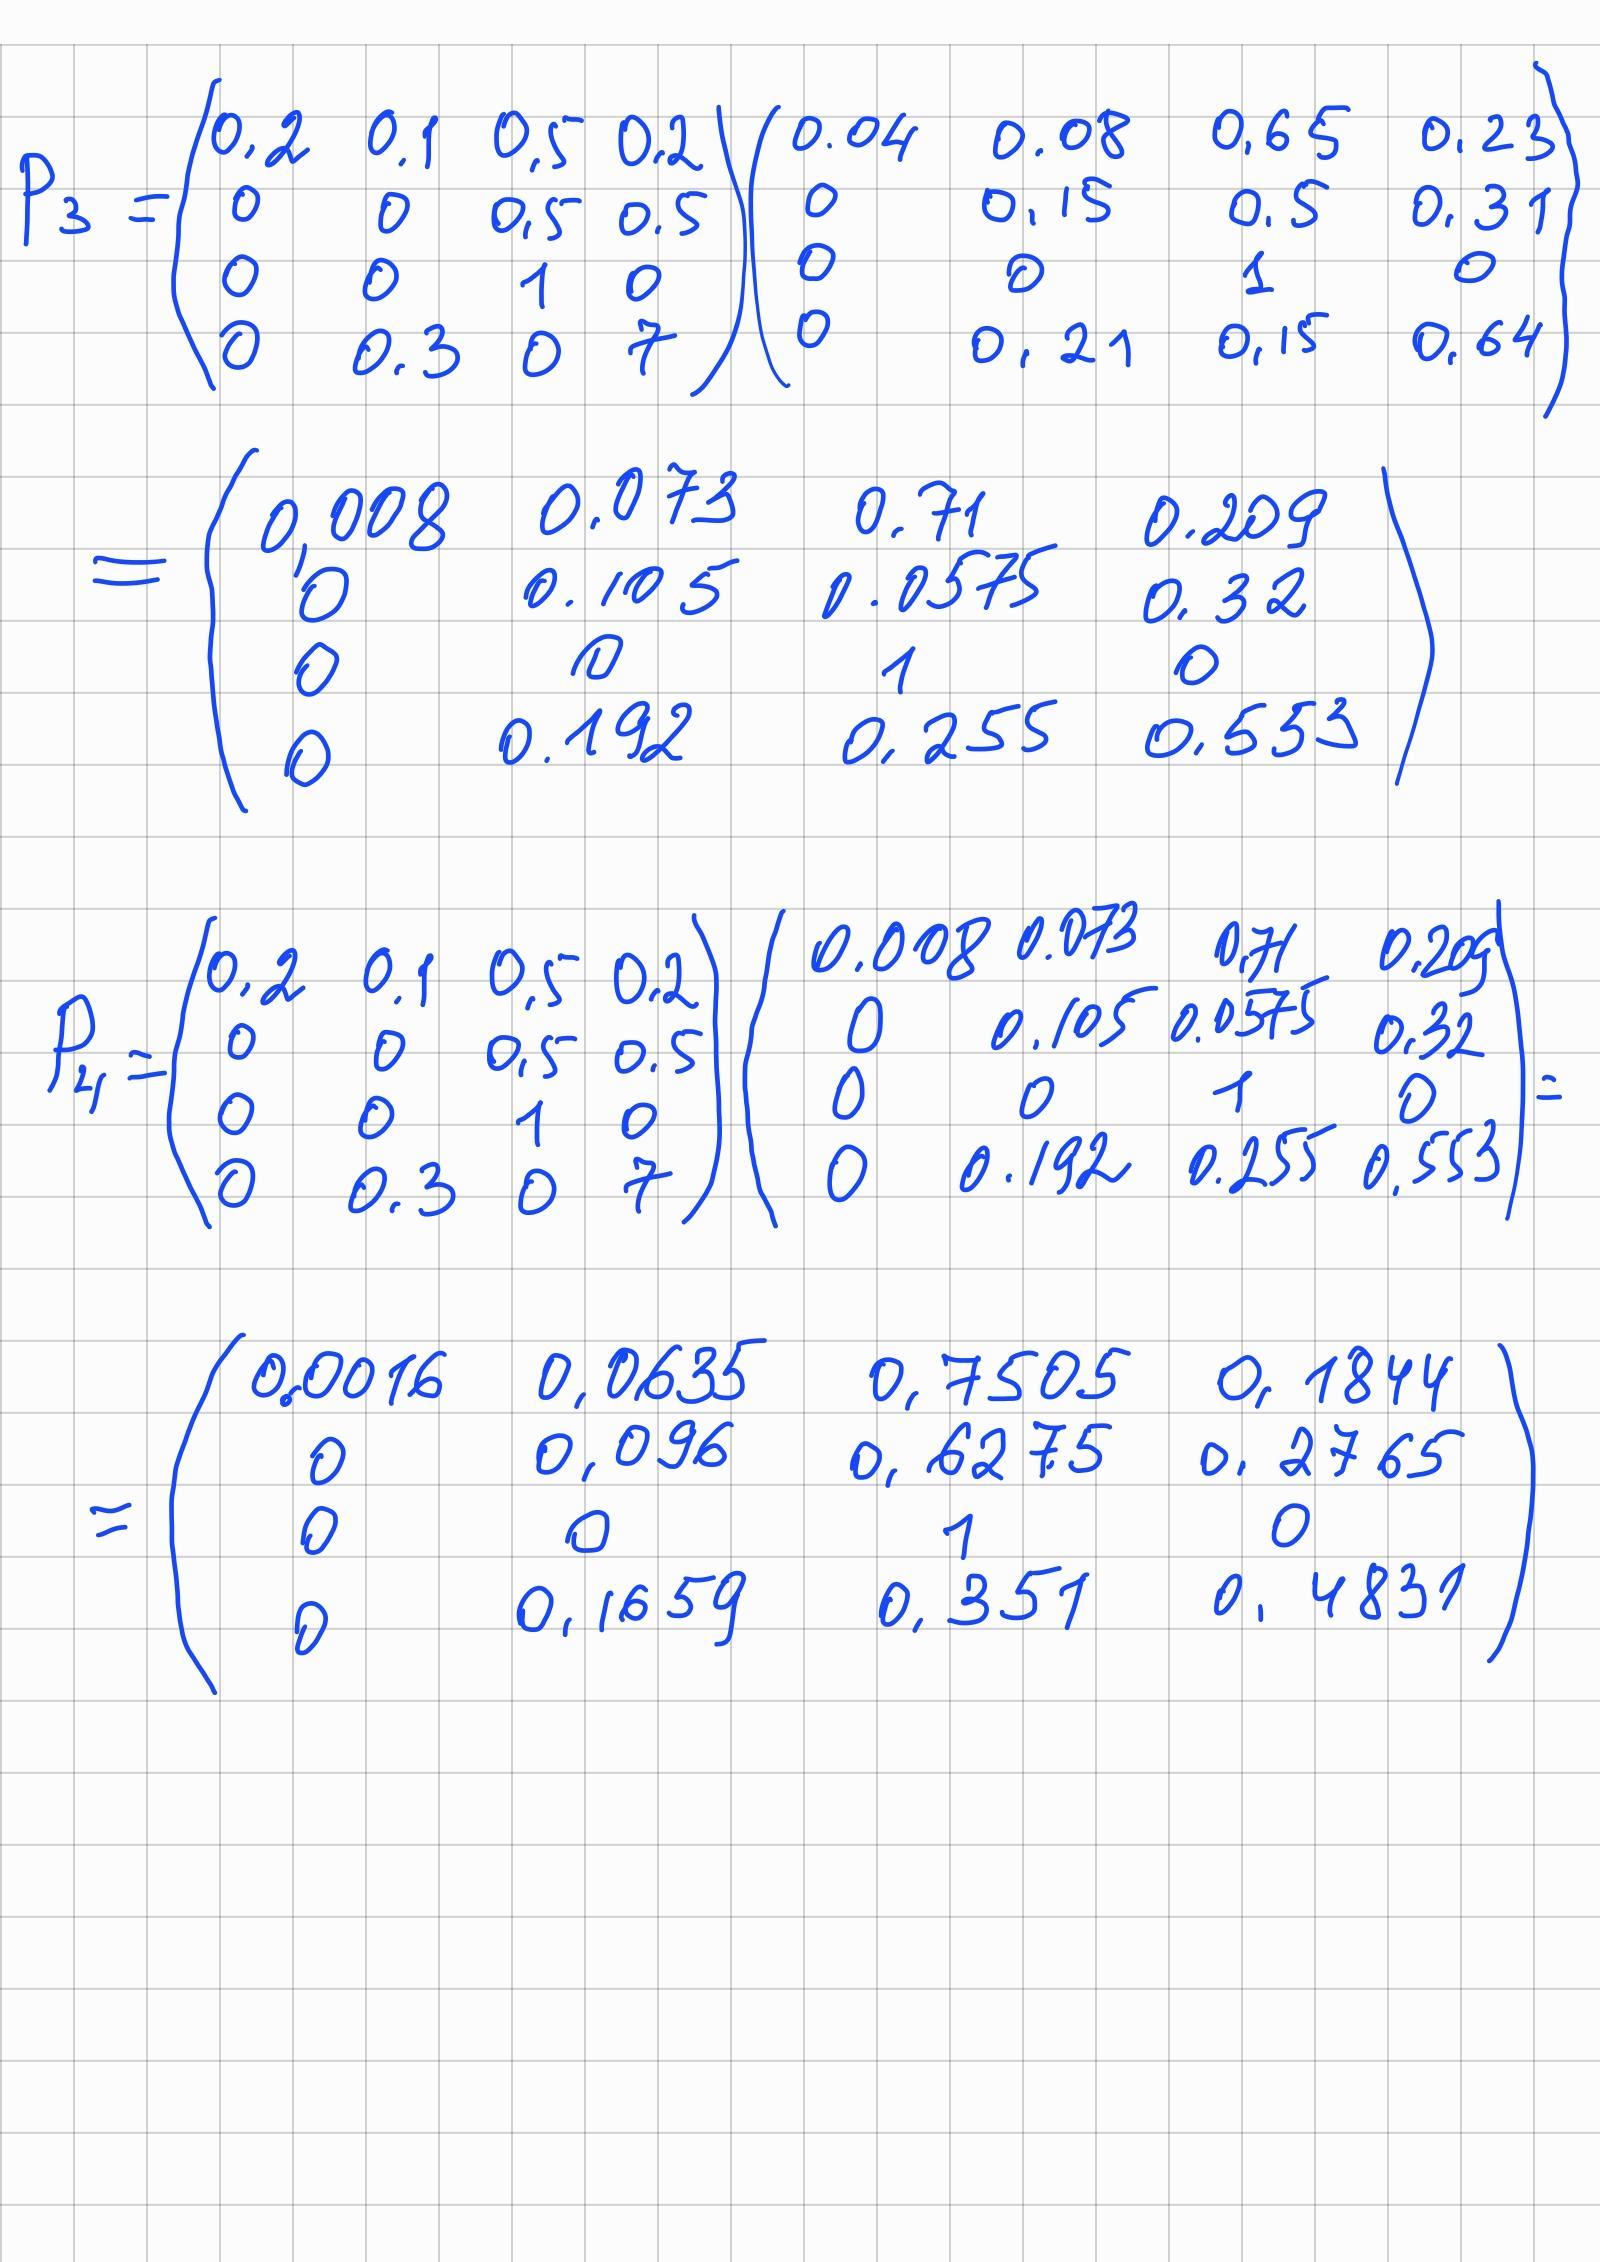 P3 = (0,2 0,1 0,5 0,2) (0.04 0.08 0,65 0.23)
0 0 0,5 0.5 0 0.15 0.5 0.31
0 0 1 0 0 0 1 0
0 0.3 0 7 0 0.21 0,15 0.64
= (0,008 0.073 0.71 0.209)
0 0.105 0.0575 0.32
0 0 1 0
0 0.192 0.255 0.553
P4 = (0,2 0,1 0,5 0,2) (0.008 0.073 0,71 0,209) =
0 0 0,5 0.5 0 0.105 0.0575 0,32
0 0 1 0 0 0 1 0
0 0.3 0 7 0 0.192 0.255 0,553
= (0,0016 0,0635 0,7505 0,1844)
0 0,096 0,6275 0.2765
0 0 1 0
0 0,1659 0,351 0,4831